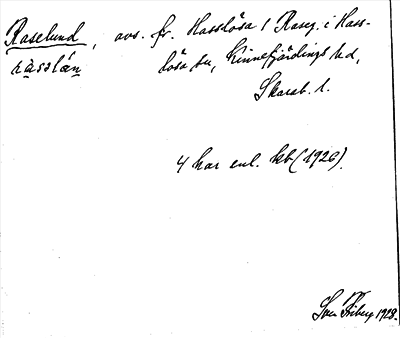 Raselund, avs. fr. Hasslösa 1 Raseg. i Hass-
ràsslán lösa sn, Kinnefjärdings hd,
Skarab. l.
4 har enl. kb (1926).
Sven Friberg 1928.